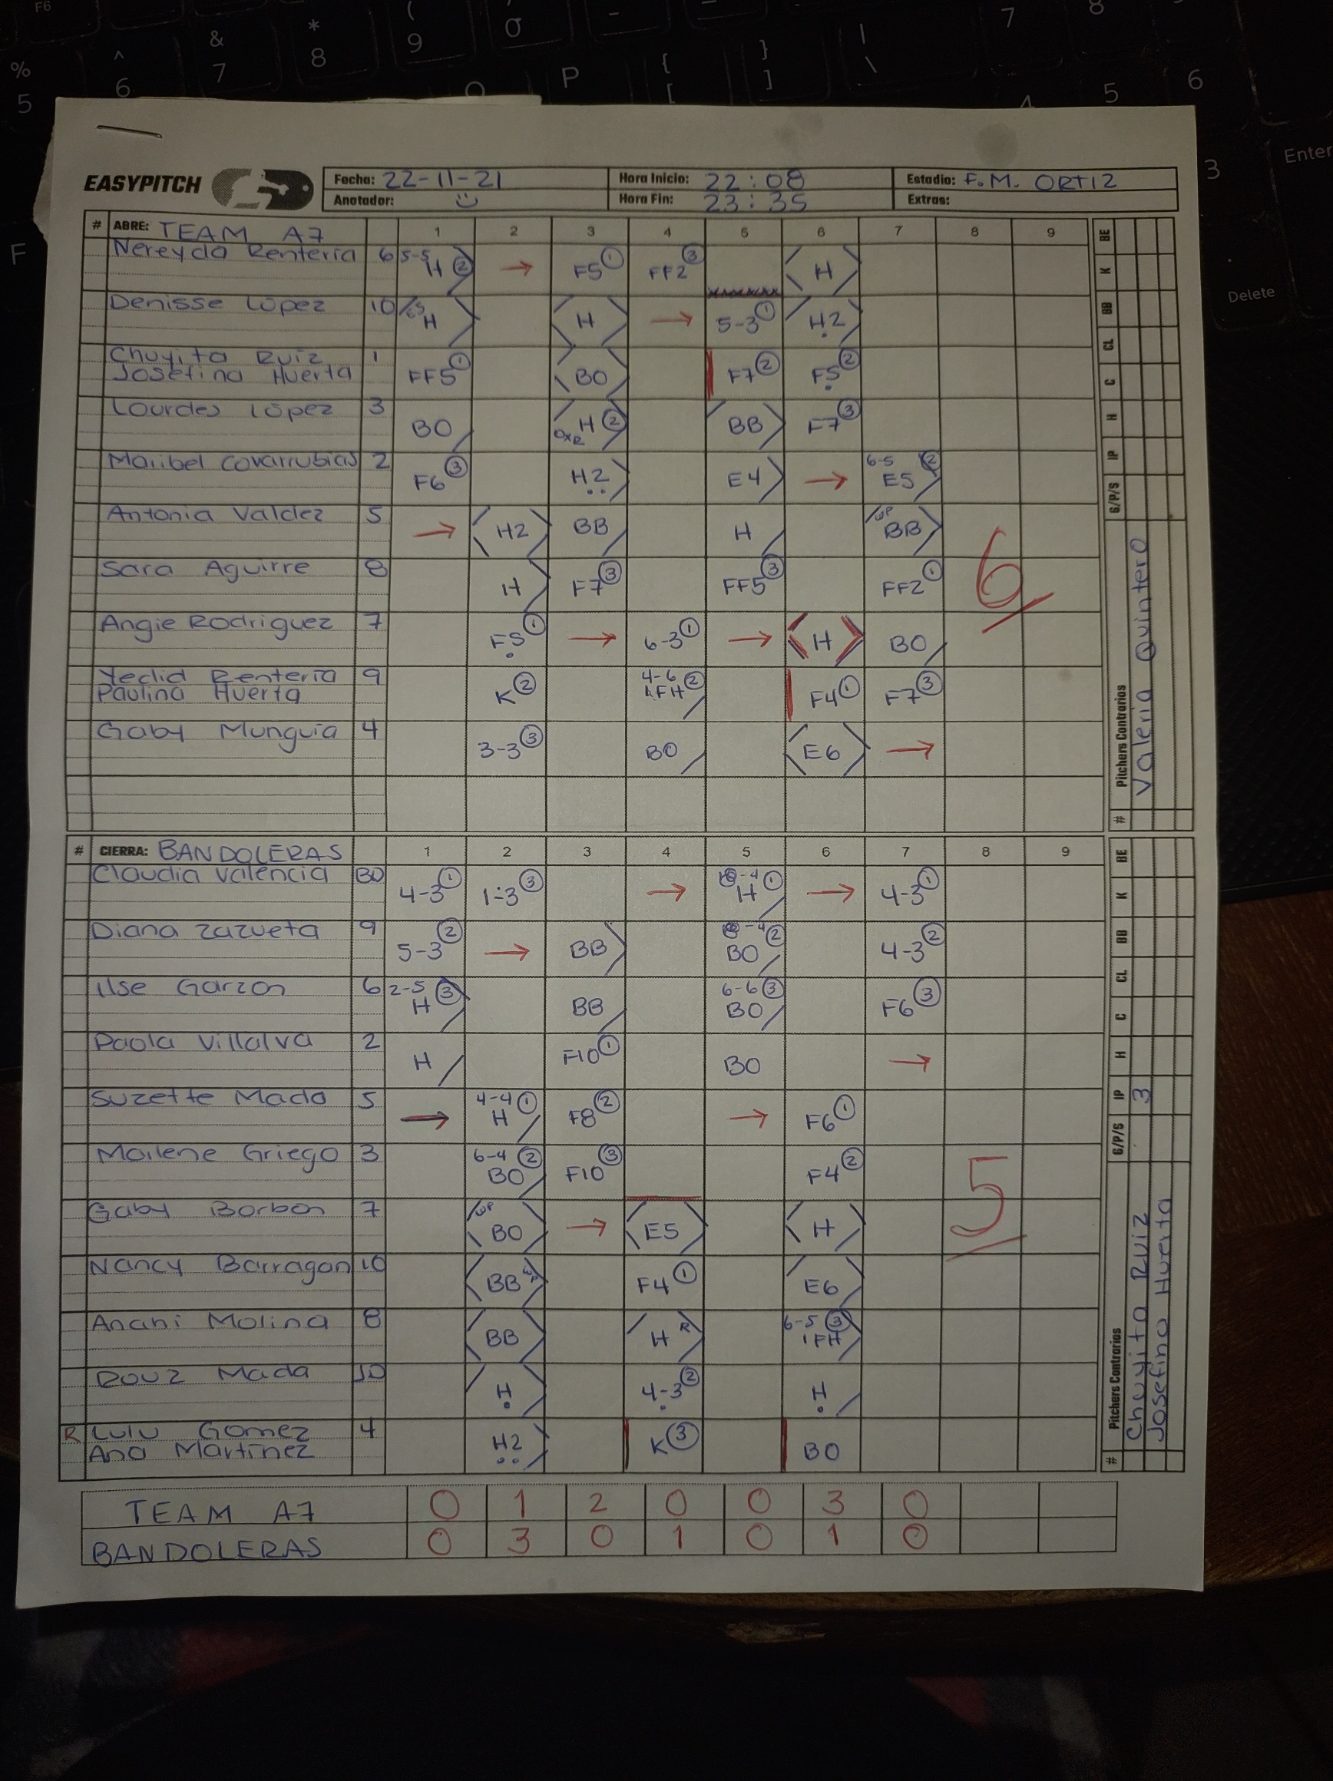 EASYPITCH
Fecha: 22-11-21 Hora Inicio: 22:08 Estadio: F.M. ORTIZ
Anotador: Hora Fin: 23:35 Extras:
# ABRE: TEAM A7 1 2 3 4 5 6 7 8 9
Nereyda Renteria 6 5-5 H ② → F5 ① FF2 ③ H
Denisse López 10 H H → 5-3 ① H2
Chuyita Ruiz 1
Josefina Huerta FF5 ① BO F7 ② F5 ②
Lourdes López 3 BO H ② BB F7 ③
Maribel Covarrubias 2 F6 ③ H2 E4 → 6-5 E5 ②
Antonia Valdez 5 → H2 BB H WP BB
Sara Aguirre 8 H F7 ③ FF5 ③ FF2 ①
Angie Rodriguez 7 F5 ① → 6-3 ① → H BO
Yeclid Renteria 9
Paulina Huerta K ② 4-6 IFH ② F4 ① F7 ③
Gaby Munguia 4 3-3 ③ BO E6 →
6
# CIERRA: BANDOLERAS 1 2 3 4 5 6 7 8 9
Claudia Valencia BO 4-3 ① 1-3 ③ → H ① → 4-3 ①
Diana Zazueta 9 5-3 ② → BB BO ② 4-3 ②
Ilse Garzon 6 2-5 H ③ BB 6-6 BO ③ F6 ③
Paola Villalva 2 H F10 ① BO →
Suzette Mada 5 → 4-4 H ① F8 ② → F6 ①
Marlene Griego 3 6-4 BO ② F10 ③ F4 ②
Gaby Borbon 7 WP BO → E5 H
Nancy Barragan 10 BB F4 ① E6
Anahi Molina 8 BB H R 6-5 IFH ③
Rouz Mada 10 H 4-3 ② H
R Lulu Gomez 4
Ana Martinez H2 K ③ BO
5
TEAM A7 0 1 2 0 0 3 0
BANDOLERAS 0 3 0 1 0 1 0
# Pitchers Contrarios G/P/S IP H C CL BB K BE
Valeria Quintero
# Pitchers Contrarios G/P/S IP H C CL BB K BE
Chuyito Ruiz 3
Josefina Huerta